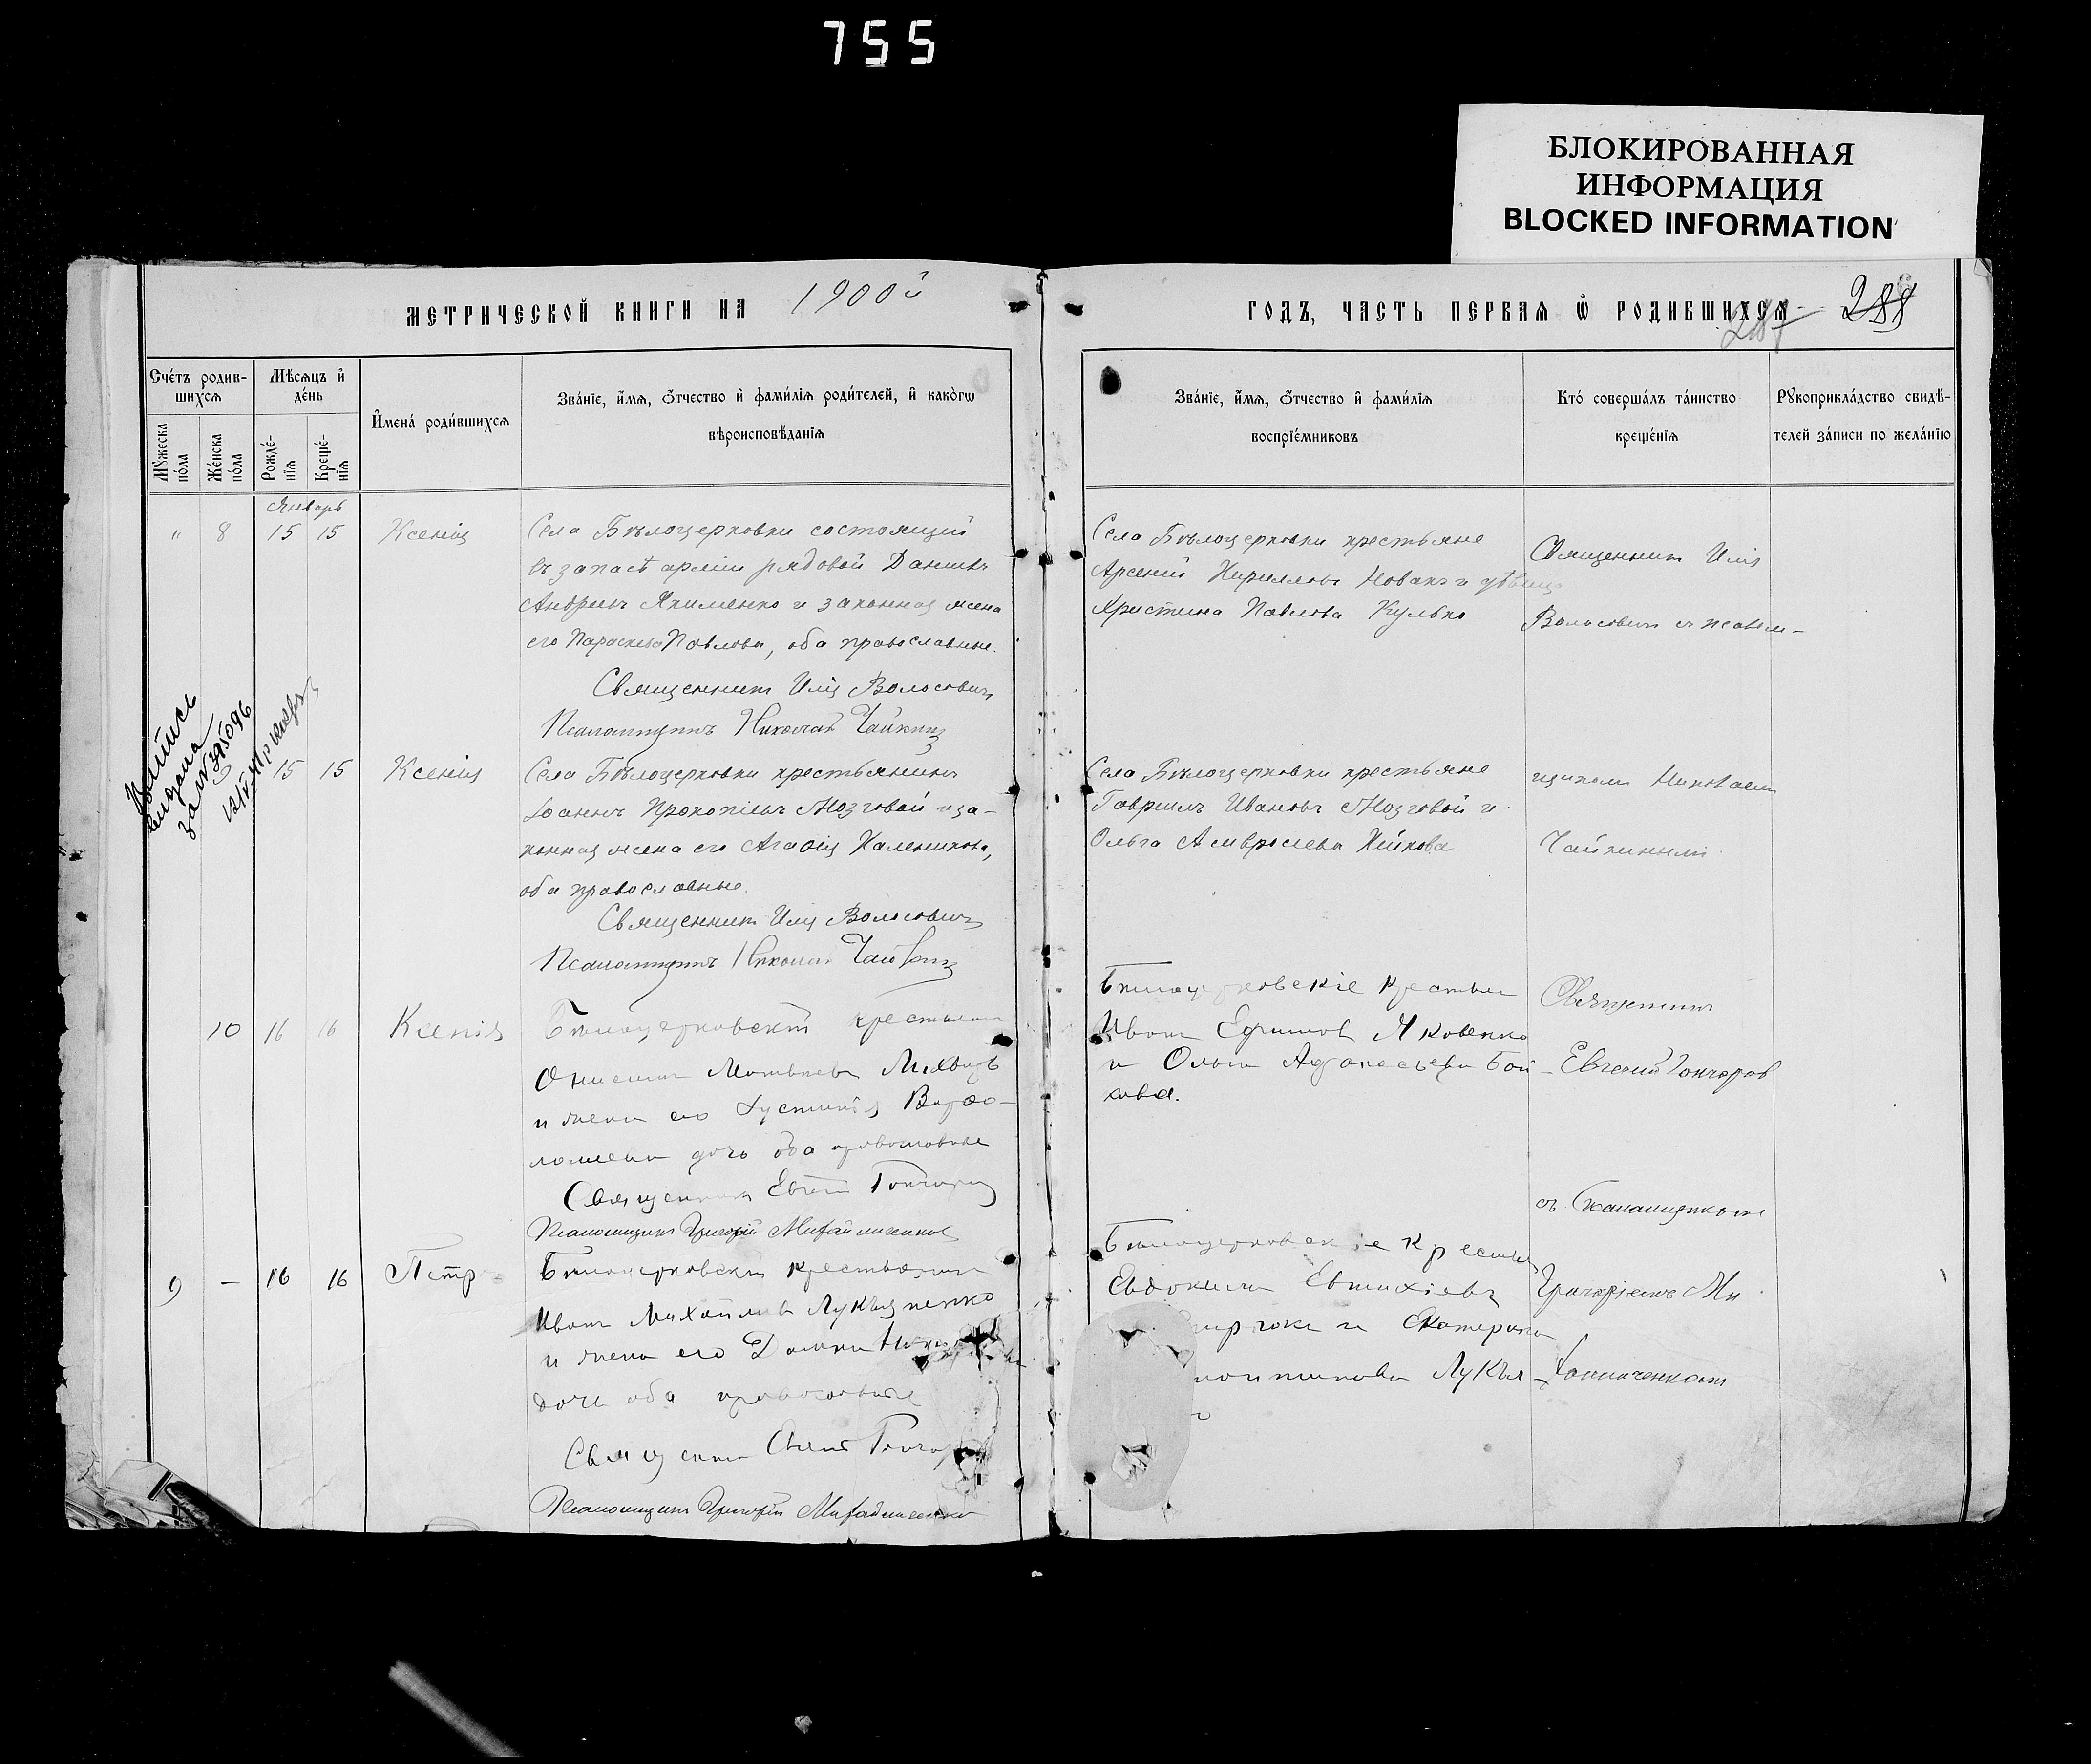 755
БЛОКИРОВАННАЯ
ИНФОРМАЦИЯ
BLOCKED INFORMATION
МЕТРИЧЕСКОЙ КНИГИ НА 1900й
ГОДЪ, ЧАСТЬ ПЕРВАЯ Ѡ РОДИВШИХСЯ 288
Сче́тъ родив-
шихсѧ
Мѣсѧцъ и҆
де́нь
Мꙋ́жеска
по́ла
Же́нска
по́ла
Рожде́-
нїѧ
Креще́-
нїѧ
И҆мена̀ роди́вшихсѧ
Зва́нїе, и҆́мѧ, ѻ҆́тчество и҆ фамі́лїѧ роди́телей, и҆ како́гѡ
вѣроисповѣ́данїѧ
Зва́нїе, и҆́мѧ, ѻ҆́тчество и҆ фамі́лїѧ
воспрїе́мниковъ
Кто́ соверша́лъ та́инство
креще́нїѧ
Рꙋкоприкла́дство свидѣ́-
телей за́писи по жела́нїю
Январь
" 8 15 15 Ксенія
Села Бѣлоцерковки состоящій
въ запасѣ арміи рядовой Даніилъ
Андреевъ Якименко и законная жена
его Параскева Павлова, оба православные.
Священникъ Илія Волосовичъ
Псаломщикъ Николай Чайкинъ
Села Бѣлоцерковки крестьяне
Арсеній Кирилловъ Новакъ и дѣвица
Христина Павлова Кулько
Священникъ Илія
Волосовичъ съ псалом-
15 15 Ксенія
Села Бѣлоцерковки крестьянинъ
Іоаннъ Прокопіевъ Мозговой и за-
конная жена его Агафія Каленикова,
оба православные.
Священникъ Илія Волосовичъ
Псаломщикъ Николай Чайкинъ
Села Бѣлоцерковки крестьяне
Гавріилъ Ивановъ Мозговой и
Ольга Амвросіева
щикомъ Николаемъ
Чайкинымъ
10 16 16 Ксенія
Бѣлоцерковскій крестьянинъ
Онисимъ Матвѣевъ
и жена его Іустинія Варфо-
ломеева дочь оба православные
Священникъ Евгеній Гончаровъ
Псаломщикъ Григорій
Бѣлоцерковскіе крестьяне
Иванъ Ефимовъ Яковенко
и Ольга Афанасьева Бой-
кова.
Священникъ
Евгеній Гончаровъ
съ Псаломщикомъ
9 — 16 16 Петръ
Бѣлоцерковскій крестьянинъ
Иванъ Михайловъ Лукьяненко
и жена его Домна
дочь оба православные
Священникъ Евгеній Гончаровъ
Псаломщикъ Григорій
Бѣлоцерковскіе крестьяне
Евдокимъ Евтихіевъ
и Екатерина
Лукья-
Григоріемъ Ми